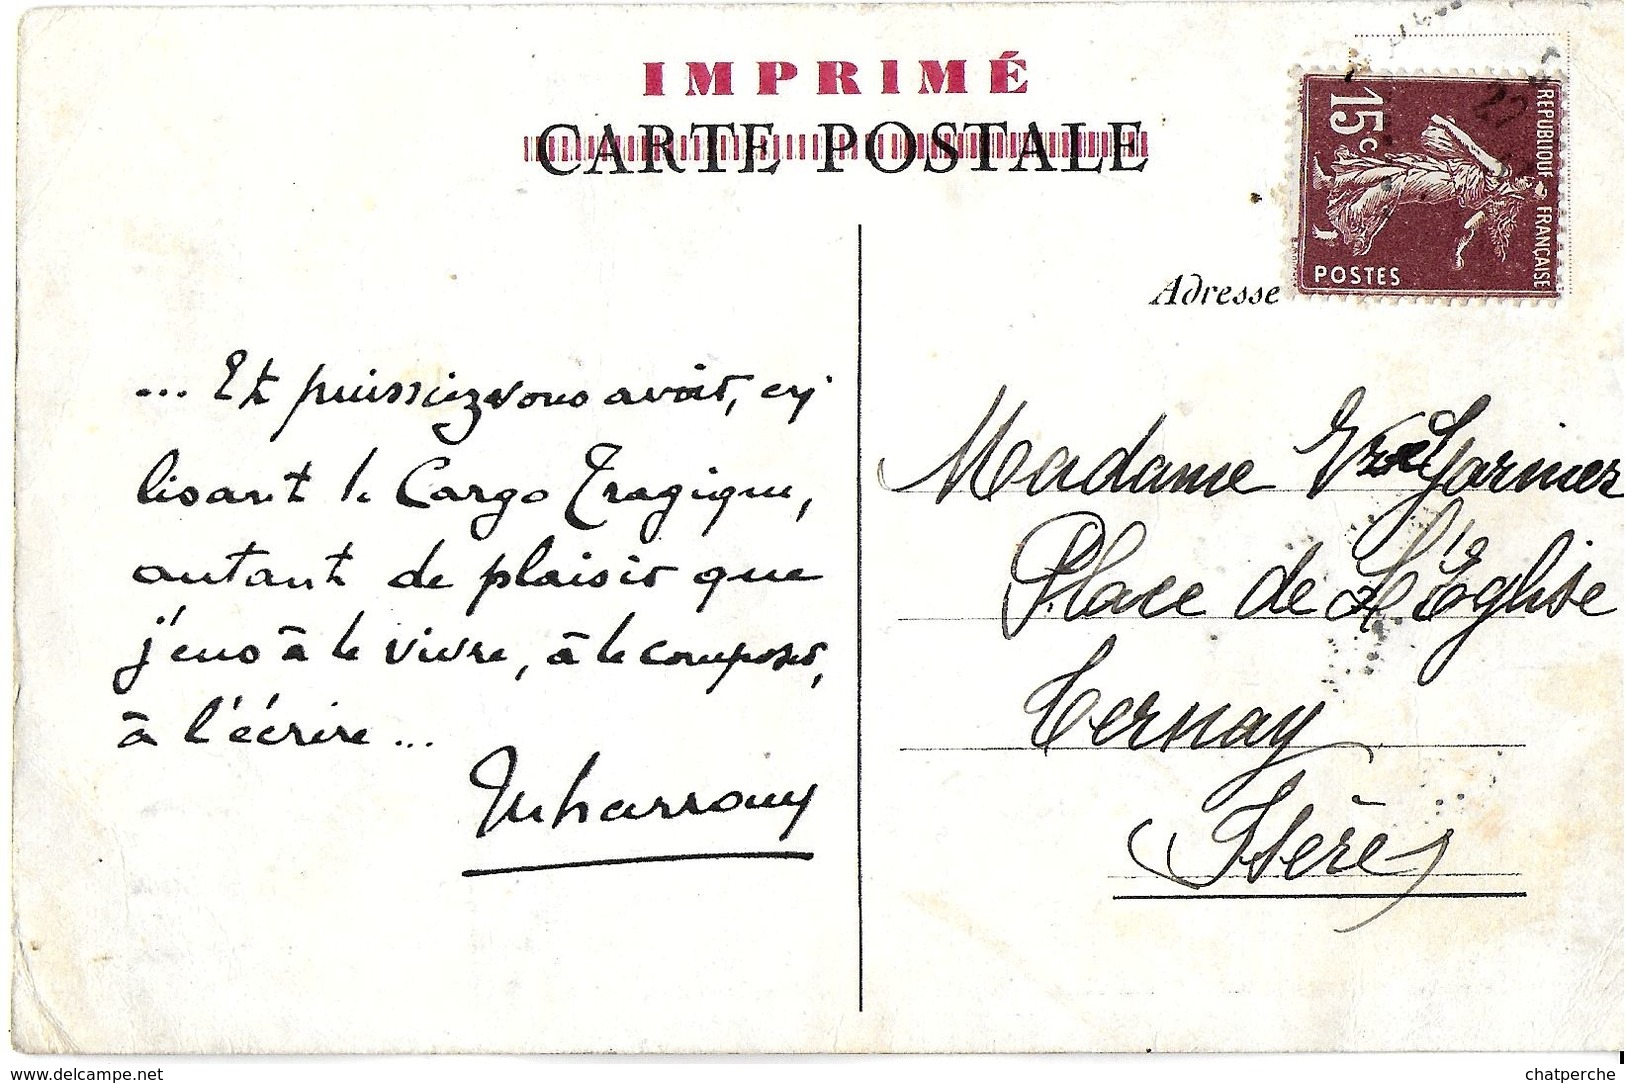 IMPRIMÉ
CARTE POSTALE
15c
RÉPUBLIQUE FRANÇAISE
POSTES
Adresse
... Et puissiez vous avoir, en
lisant le Cargo Tragique,
autant de plaisir que
j'eus à le vivre, à le composer,
à l'écrire ...
Madame
Place de L'Église
Ternay
(Isère)
delcampe.net
chatperche